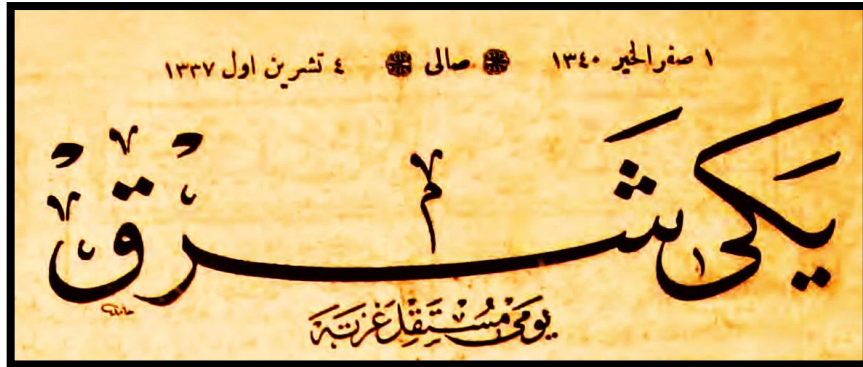 ١ صفر الخير ١٣٤٠ صالى ٤ تشرين اول ١٣٣٧
يَكى شَرْق
يومى مُسْتَقِلْ غَزَتَه